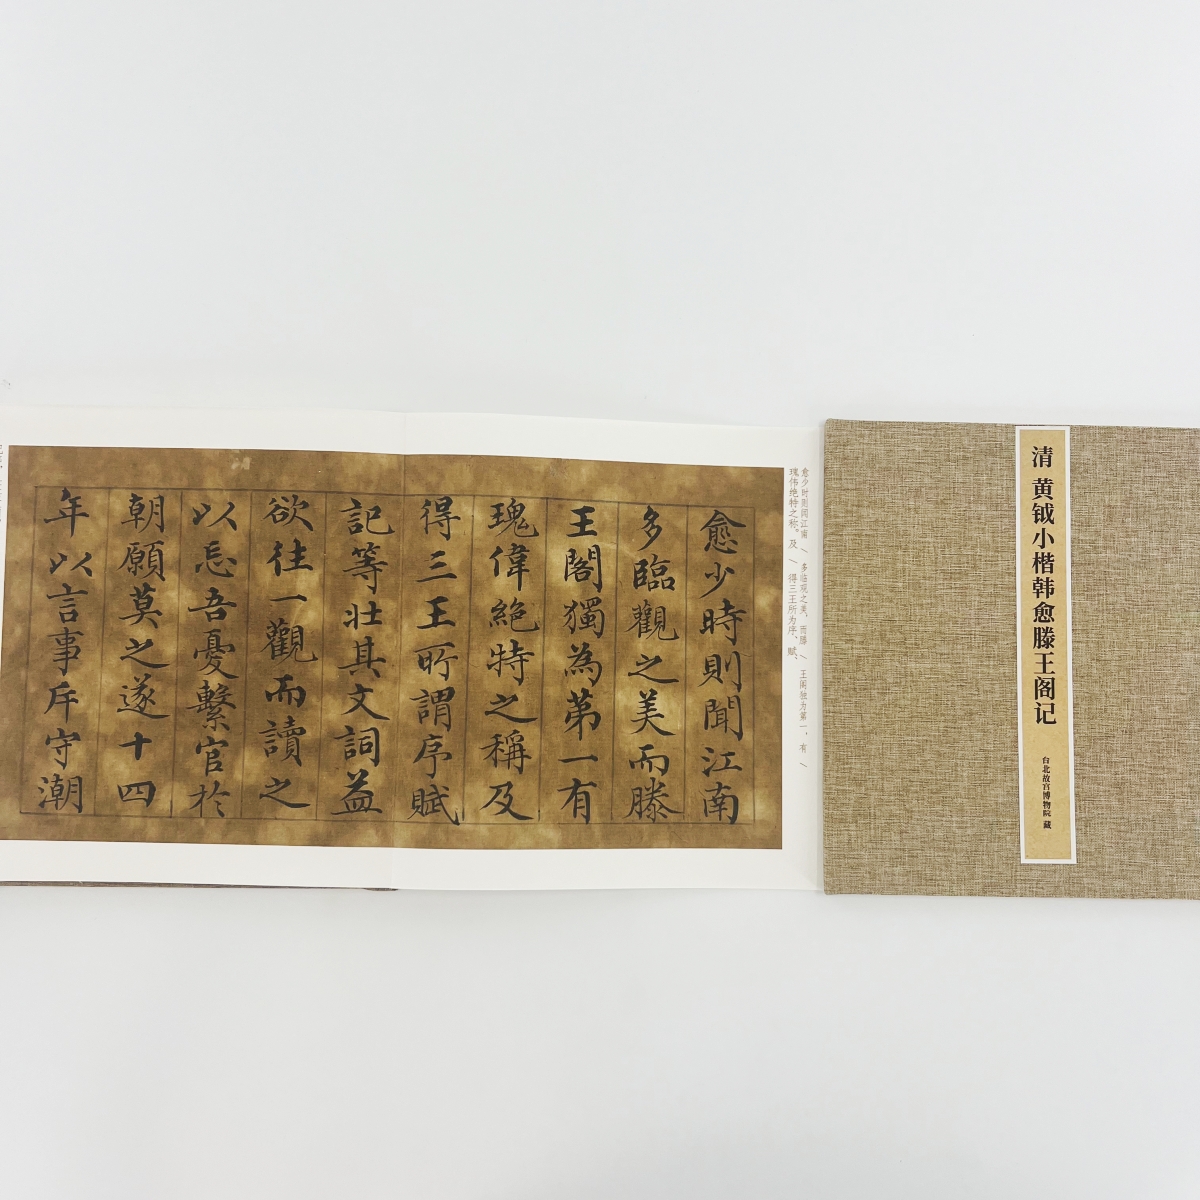 清 黄钺小楷韩愈滕王阁记
台北故宫博物院 藏
愈少时则闻江南 / 多临观之美，而滕 / 王阁独为第一，有 /
瑰伟绝特之称。及 / 得三王所为序、赋、
愈少時則聞江南
多臨觀之美而滕
王閣獨為第一有
瑰偉絕特之稱及
得三王所謂序賦
記等壯其文詞益
欲往一觀而讀之
以忘吾憂繫官於
朝願莫之遂十四
年以言事斥守潮